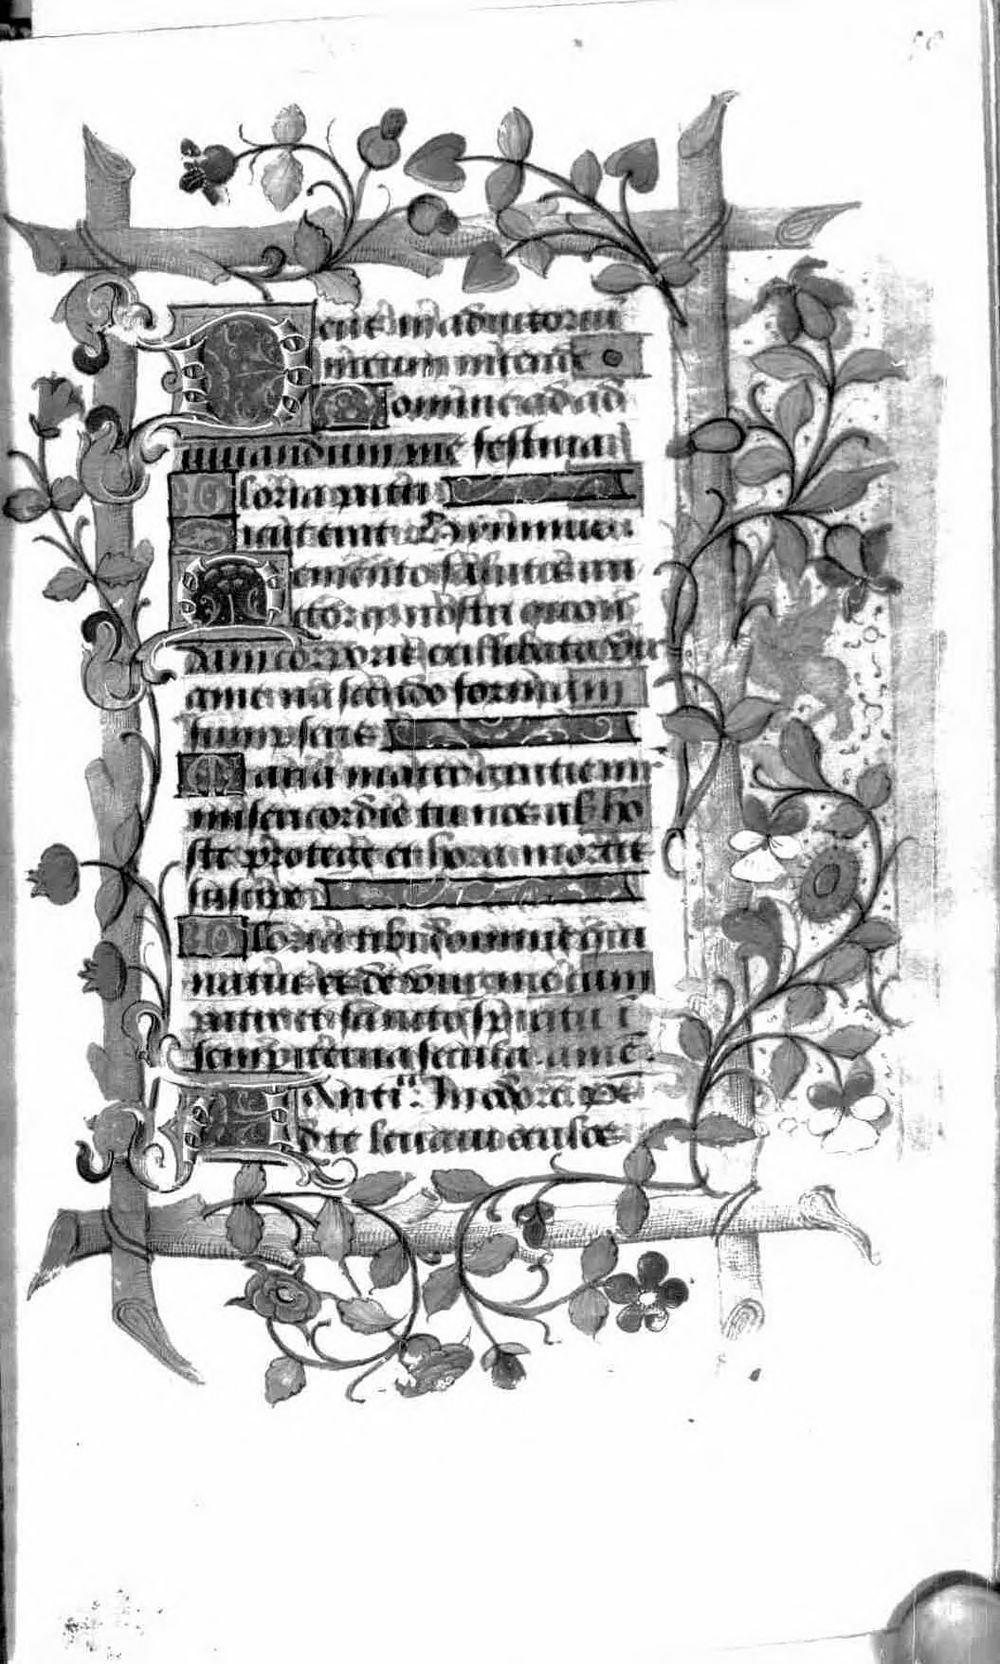 Deus in adiutorium
meum intende
Domine ad ad
iuuandum me festina
Gloria patri
Sicut erat Hymnus
Memento salutis au
ctor q nostri quon
dam corporis ex illibata vir
gine nascendo formam
sumpseris
Maria mater gratie m
misericordie tu nos ab ho
ste protege et hora mortis
suscipe
Gloria tibi domine qui
natus es de virgine cum
patre et sancto spiritu i
sempiterna secula amē
Antiᵃ In odorē Ps
Ad te leuaui oculos